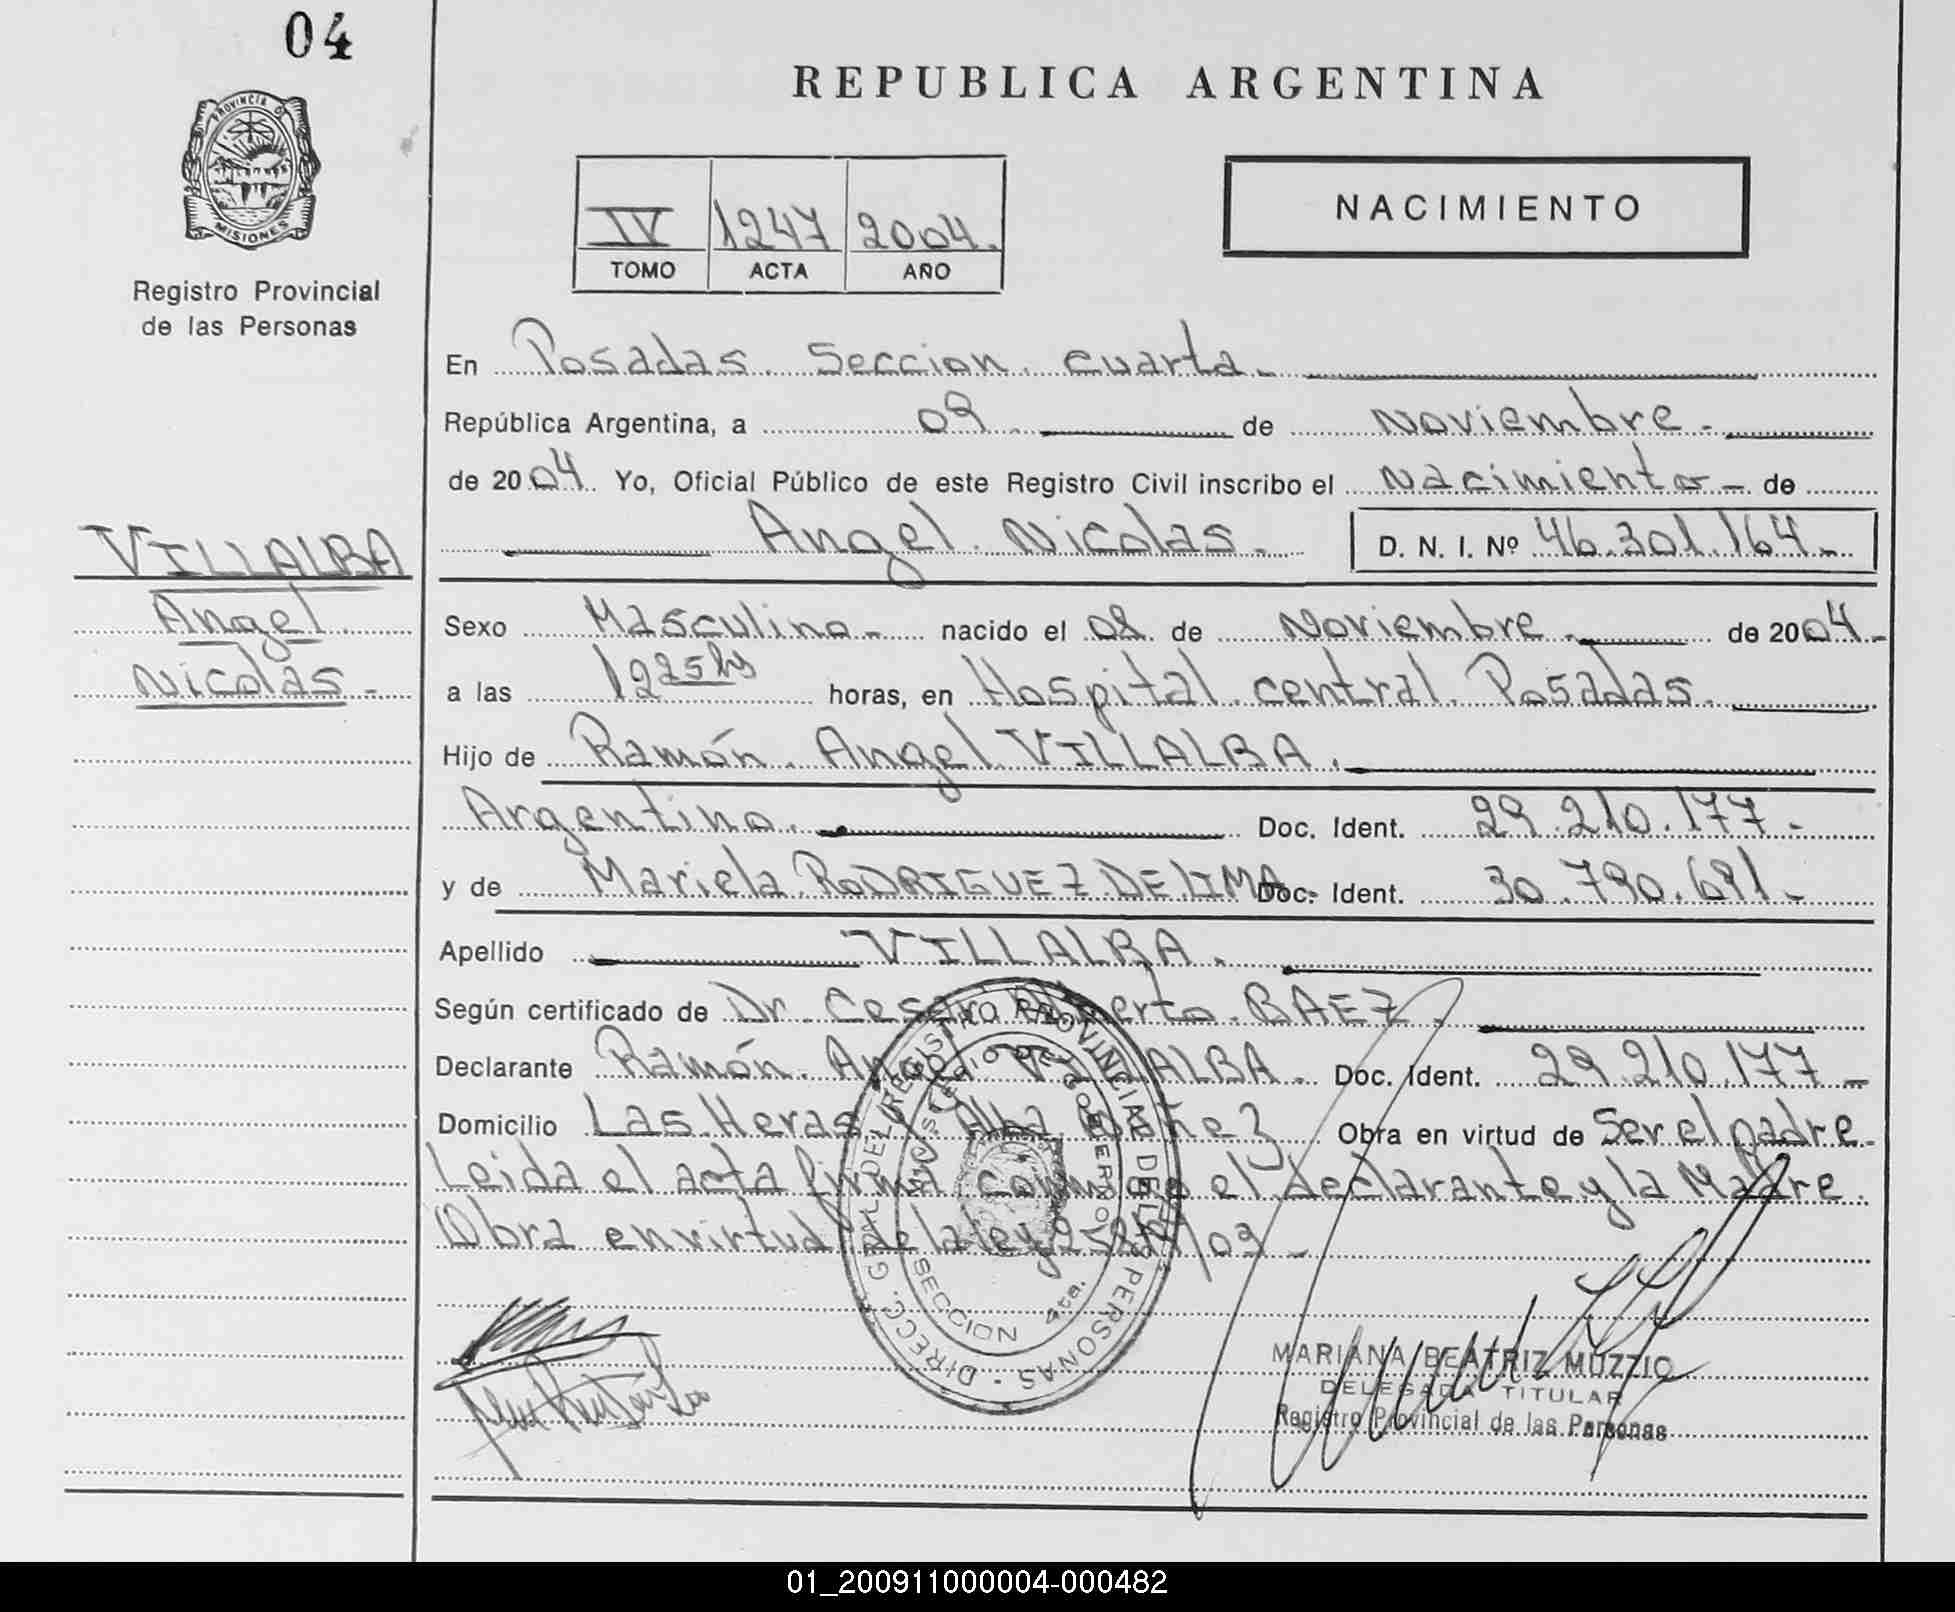 04
PROVINCIA DE
MISIONES
Registro Provincial
de las Personas
REPUBLICA ARGENTINA
IV 1247 2004.
TOMO ACTA AÑO
NACIMIENTO
En Posadas. Seccion. cuarta.
República Argentina, a 09 de Noviembre.
de 2004. Yo, Oficial Público de este Registro Civil inscribo el Nacimiento de
Angel. Nicolas. D. N. I. Nº 46.301.164.
VILLALBA
Angel
Nicolas.
Sexo Masculino. nacido el 08 de Noviembre. de 2004.
a las 12 25 hs horas, en Hospital central. Posadas.
Hijo de Ramón. Angel VILLALBA.
Argentino. Doc. Ident. 29.210.177.
y de Mariela RODRIGUEZ DE LIMA. Doc. Ident. 30.790.691.
Apellido VILLALBA.
Según certificado de Dr. Cesar Alberto. BAEZ.
Declarante Ramón. Angel VILLALBA. Doc. Ident. 29.210.177
Domicilio Las Heras y Alba Obra en virtud de Ser el padre.
Leida el acta firma conmigo el declarante y la Madre.
Obra en virtud de la ley
DIRECC. GRAL. DEL REGISTRO PROVINCIAL DE LAS PERSONAS
MINISTERIO DE GOBIERNO
SECCION 4ta.
MARIANA BEATRIZ MUZZIO
DELEGADA TITULAR
Registro Provincial de las Personas
01_200911000004-000482